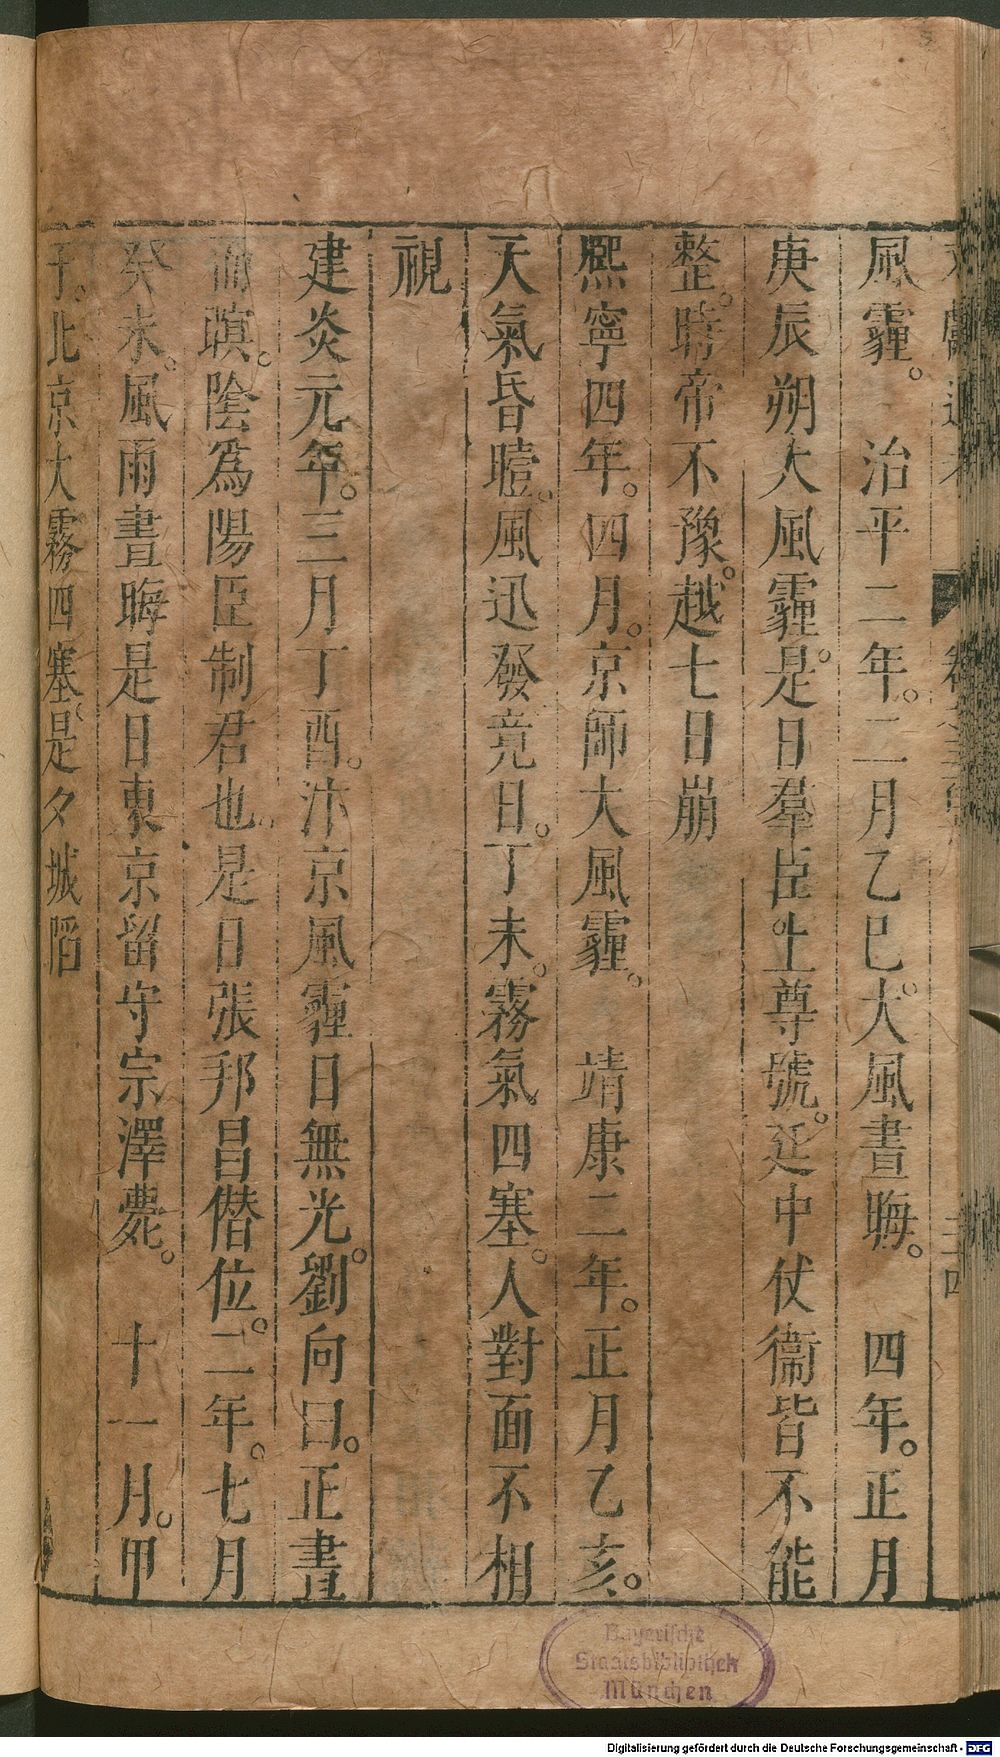 風霾。　治平二年。二月乙巳。大風晝晦。　四年。正月
庚辰朔大風霾。是日羣臣上尊號。廷中仗衞皆不能
整。時帝不豫。越七日崩
熙寧四年。四月。京師大風霾。　靖康二年。正月乙亥。
天氣昏曀。風迅發竟日。丁未。霧氣四塞。人對面不相
視
建炎元年。三月丁酉。汴京風霾日無光。劉向曰。正晝
而暝。陰爲陽臣制君也。是日張邦昌僭位。二年。七月
癸未。風雨晝晦是日東京留守宗澤薨。　十一月。甲
子。北京大霧四塞。是夕城陷
Bayerische
Staatsbibliothek
München
Digitalisierung gefördert durch die Deutsche Forschungsgemeinschaft - DFG